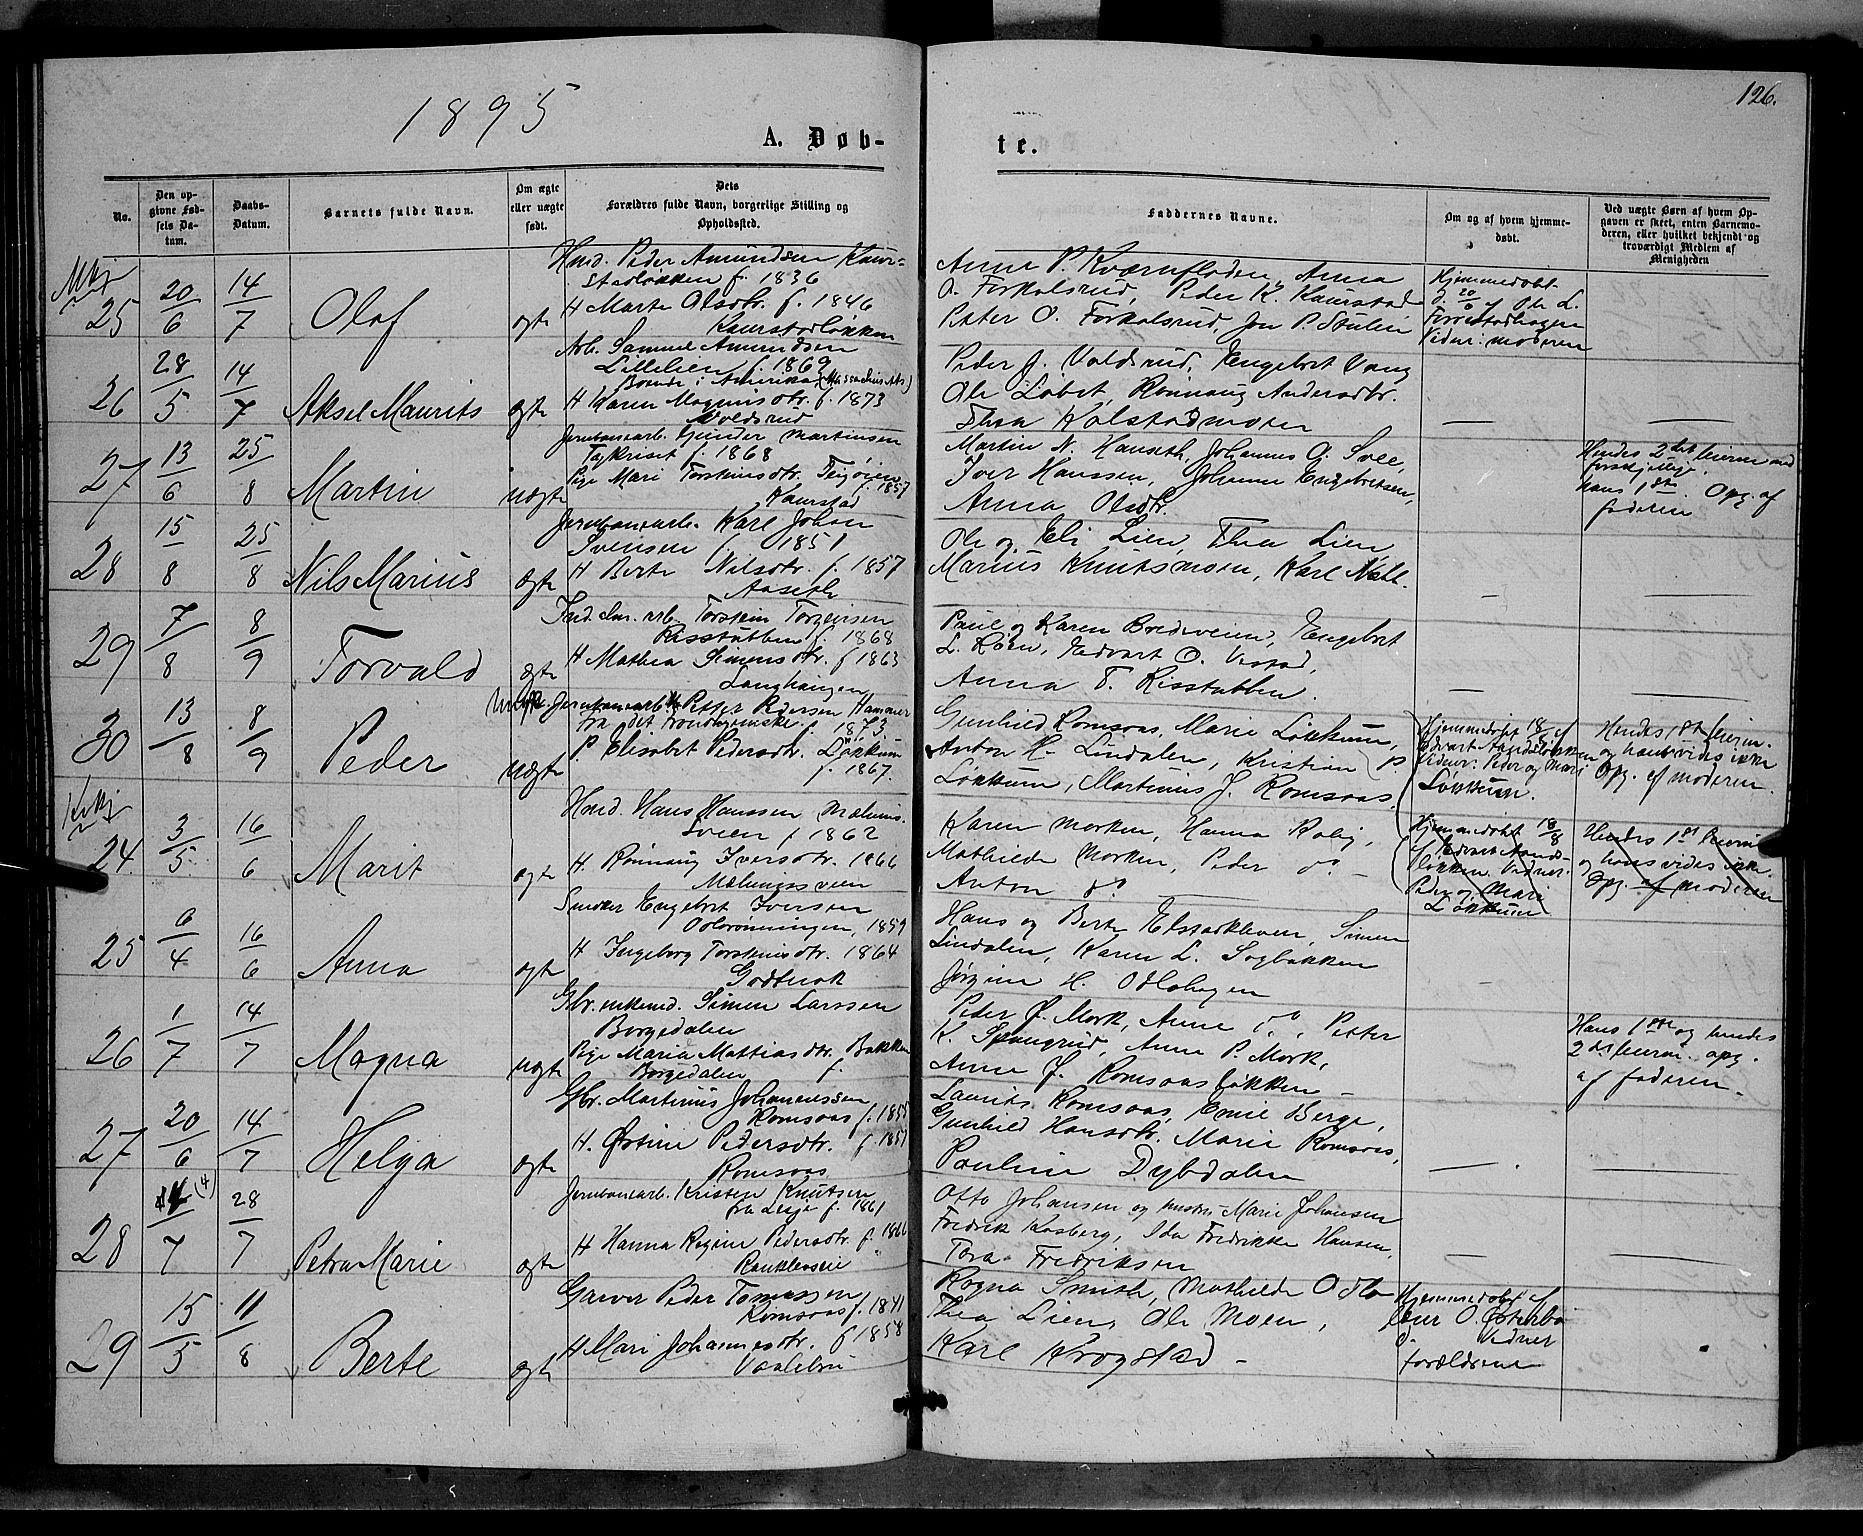 126.
1895
A. Døb-
te.
No.
Den op-
givne Fød-
sels Da-
tum.
Daabs-
Datum.
Barnets fulde Navn.
Om ægte
eller uægte
født.
Dets
Forældres fulde Navn, borgerlige Stilling og
Opholdssted.
Faddernes Navne.
Om og af hvem hjemme-
døbt.
Ved uægte Børn af hvem Op-
gaven er skeet, enten Barnemo-
deren, eller hvilket bekjendt og
troværdigt Medlem af
Menigheden
25
20/6
14/7
Olaf
ægte
Peder Amundsen
f. 1836
H Marte Olsdtr. f. 1846
Kaurstadløkken
Anne P. Kværnfloden, Anna
O. Forkalsrud, Peder K. Kaurstad
Petter O. Forkalsrud, Jon P. Stulien
Hjemmedøbt
20/6 af Ole L.
moderen
26
28/5
14/7
Aksel Maurits
ægte
Arb. Samuel Amundsen
Lillelien f. 1869
Boende i Amerika
H Karen Magnusdtr. f. 1873
Voldsrud
Peder J. Voldsrud, Engebret Vang
Ole Løbet, Rønnaug Andersdtr.
Thea Kolstadmoen
—
—
27
13/6
25/8
Martin
uægte
Jernbanearb. Gunder Martinsen
f. 1868
Pige Mari Torstensdtr. Teigøien
f. 1857
Kaurstad
Martin N. Hanseth, Johannes O. Svee,
Iver Hanssen, Johanne Engebretsen,
Anna Olsdtr.
Hendes 2det leierm. med
forskjellige.
hans 1ste. Opg. af
faderen
28
15/8
25/8
Nils Marius
ægte
Jernbanearb. Karl Johan
Svensen f. 1851
H Berte Nilsdtr. f. 1857
Aaseth
Ole og Eli Lien, Thea Lien
Marius Knutsmoen, Karl
—
—
29
7/8
8/9
Torvald
ægte
Torsten Torgersen
Risstubben f. 1868
H Mathea Simensdtr. f 1863
Langhaugen
Paul og Karen Bredeveien, Engebret
L. Løen, Edvart O.
Anna T. Risstubben.
—
—
30
13/8
8/9
Peder
uægte
Jernbanearb. Petter Pedersen Hammer
fra det Trondhjemske f. 1873
P. Elisabet Pedersdtr. Løkkum
f. 1867.
Gunhild Romsaas, Marie Løkkum,
Anton H. Lindalen, Kristian P.
Løkkum, Martinus J. Romsaas.
Hjemmedøbt 18/8 af
Edvart Aandsløkken
Vidner: Peder og Mari
Løkkum.
Hendes 1st leierm.
og hans vides ikke
Opg. af moderen.
24
3/5
16/6
Marit
ægte
Hans Hanssen Mælums-
sveen f 1862
H. Rønnaug Iversdtr. 1866
Mælumssveen
Karen Morken, Hanna Roby,
Mathilde Morken, Peder do —
Anton do —
Hjemmedøbt 18/8
af Edvart Aands-
løkken Vidner.
Peder og Mari
Løkkum
Hendes 1st leierm
og hans vides ikke.
Opg. af moderen
25
6/4
16/6
Anna
ægte
Snedker Engebret Iversen
Odlorønningen, 1859
H Ingeborg Torstensdtr. 1864
Hans og Berte Elstadkleven, Simen
Lindalen, Karen L. Sogbakken
Jørgine H. Odlohagen
—
26
1/7
14/7
Magna
uægte
Gbr. enkemd. Simen Larssen
Borgedalen
Pige Maria Mattiasdtr. Bakken
Borgedalen f.
Peder J. Mork, Anne do., Petter
K. Spangrud, Anne P. Mork,
Anne J. Romsaasløkken
—
Hans 1ste og hendes
2det leierm. opg.
af faderen —
27
20/6
14/7
Helga
ægte
Gbr. Martinus Johannessen
Romsaas f. 1855
H. Østine Pedersdtr. f 1851
Romsaas
Laurits Romsaas, Emil Berge,
Gunhild Hansdtr. Marie Romsaas,
Pauline Dybdalen
—
—
28
(4)
7
28/7
Petra Marie
ægte
Jernbanearb. Kristen Knutsen
fra Lesje f. 1861
H Hanna Regine Pedersdtr. f. 1866
Ranklevseie
Otto Johansen og hustru Marie Johansen
Fredrik Aasberg, Ida Fredrikke Hansen,
Tora Fredriksen
—
—
29
15/5
11/8
Berte
ægte
Garver Peder Tomassen
Romsaas f. 1841
H Mari Johannesdtr. f 1858
Vaalebru
Ragna Smith, Mathilde Odlo
Thea Lien, Ole Moen,
Karl Krogstad —
Hjemmedøbt af
O. Østerbø
Vidner
forældrene